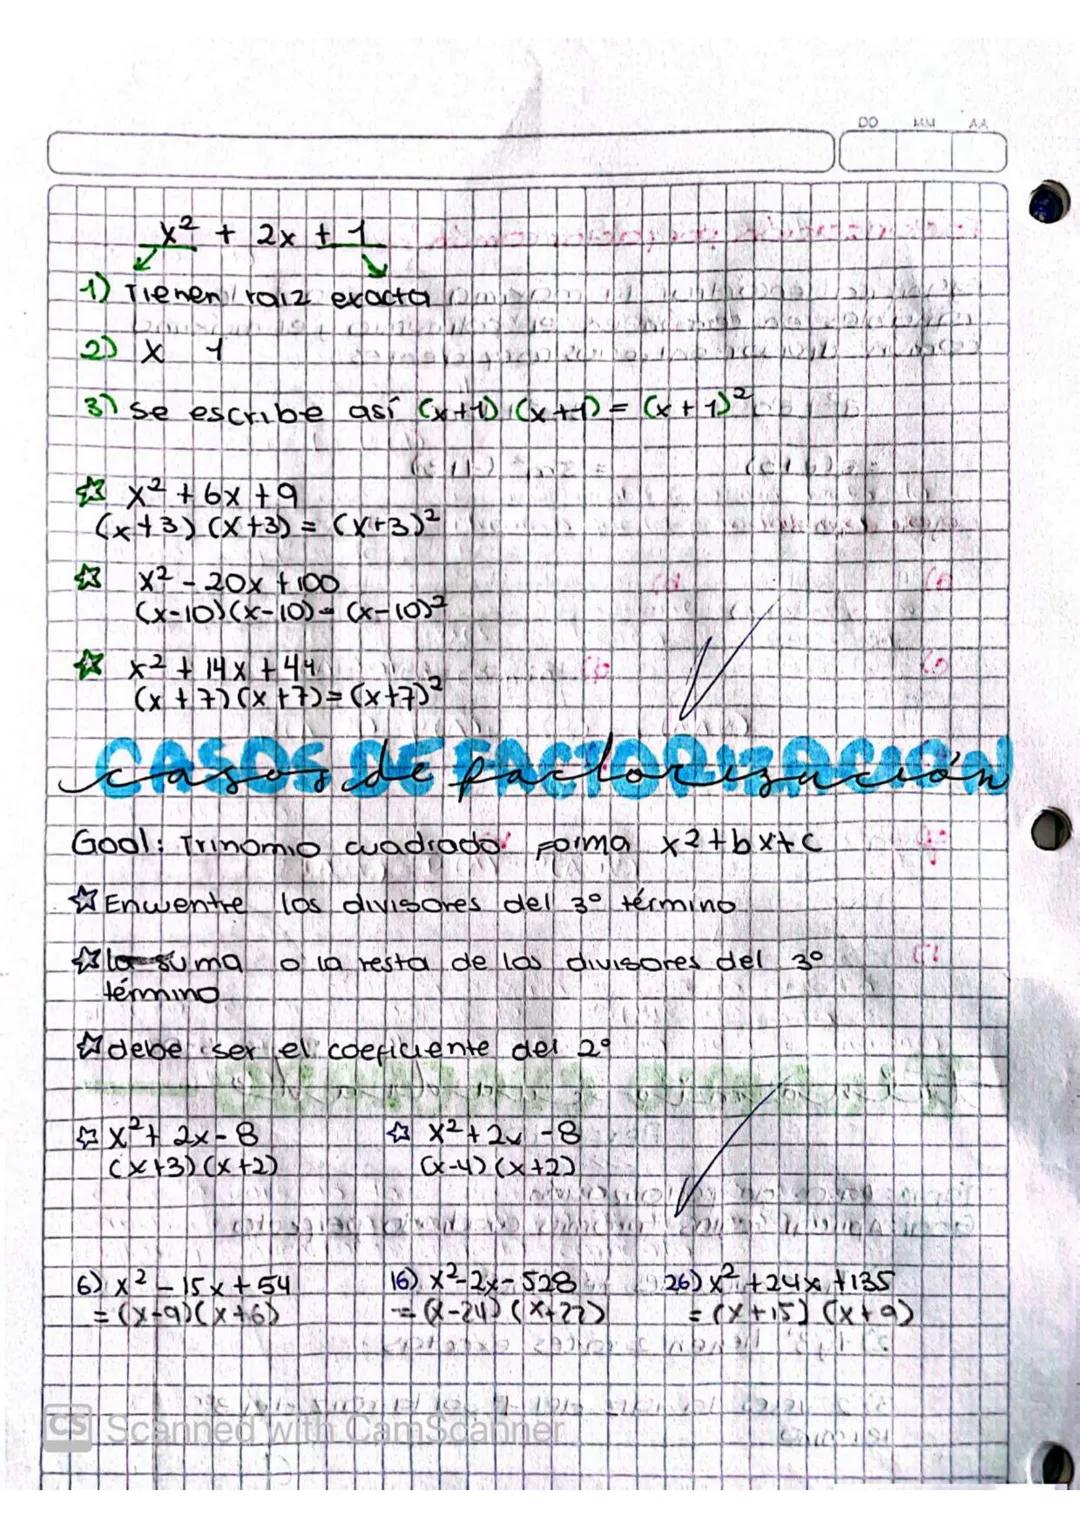 DD MM AA
x² + 2x + 1
1) Tienen raiz exacta
2) x 1
3) se escribe así (x+1) (x+1) = (x+1)²
x² + 6x + 9
(x+3) (x+3) = (x+3)²
x² - 20x + 100
(x-10)(x-10) = (x-10)²
x² + 14x + 44
(x+7)(x+7) = (x+7)²
CASOS DE FACTORIZACION
casos de factorización
Goal: Trinomio cuadrado forma x²+bx+c
Encuentre los divisores del 3° término
la suma o la resta de los divisores del 3°
término
debe ser el coeficiente del 2°
x² + 2x - 8 x² + 2x - 8
(x+3)(x+2) (x-4)(x+2)
6) x² - 15x + 54 16) x² - 2x - 528 26) x² + 24x + 135
= (x-9)(x+6) = (x-24)(x+22) = (x+15)(x+9)
CS Scanned with CamScanner